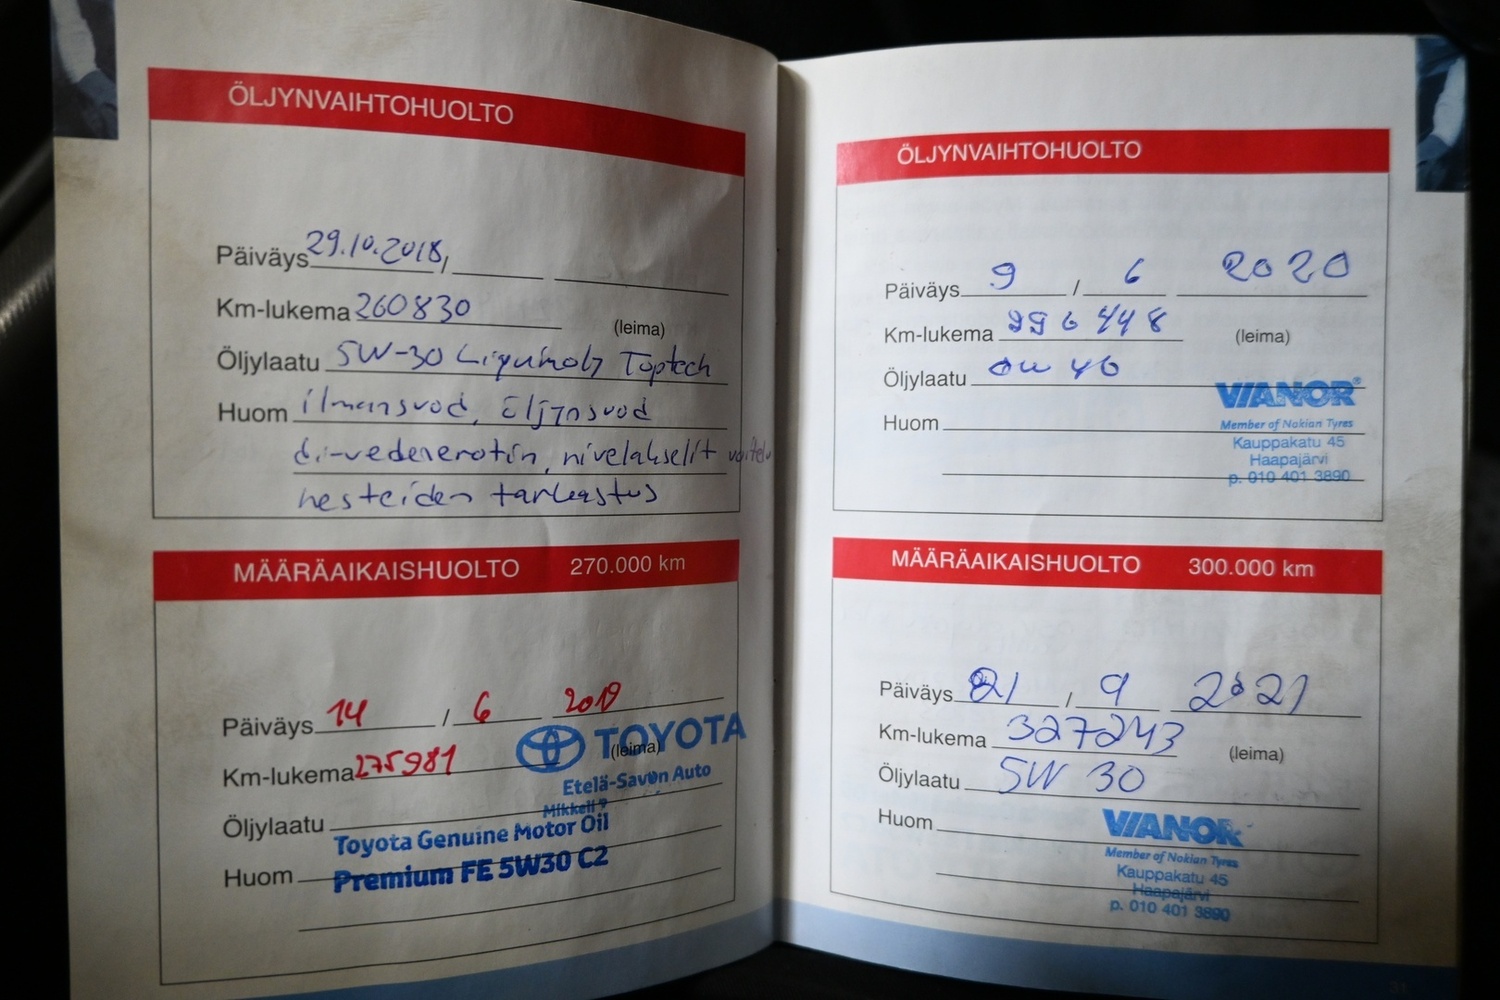 ÖLJYNVAIHTOHUOLTO
Päiväys 29.10.2018 /
Km-lukema 260830
(leima)
Öljylaatu 5W-30 Liquimoly Toptech
Huom ilmansuod, öljynsuod
nivelakselit voitelu
nesteiden tarkastus
MÄÄRÄAIKAISHUOLTO 270.000 km
Päiväys 14 / 6 2019
Km-lukema 275981
(leima)
TOYOTA
Etelä-Savon Auto
Mikkeli
Öljylaatu
Toyota Genuine Motor Oil
Huom Premium FE 5W30 C2
ÖLJYNVAIHTOHUOLTO
Päiväys 9 / 6 2020
Km-lukema 296448
(leima)
Öljylaatu 0W 40
Huom
VIANOR®
Member of Nokian Tyres
Kauppakatu 45
Haapajärvi
p. 010 401 3890
MÄÄRÄAIKAISHUOLTO 300.000 km
Päiväys 21 / 9 2021
Km-lukema 327243
(leima)
Öljylaatu 5W 30
Huom
VIANOR
Member of Nokian Tyres
Kauppakatu 45
Haapajärvi
p. 010 401 3890
31